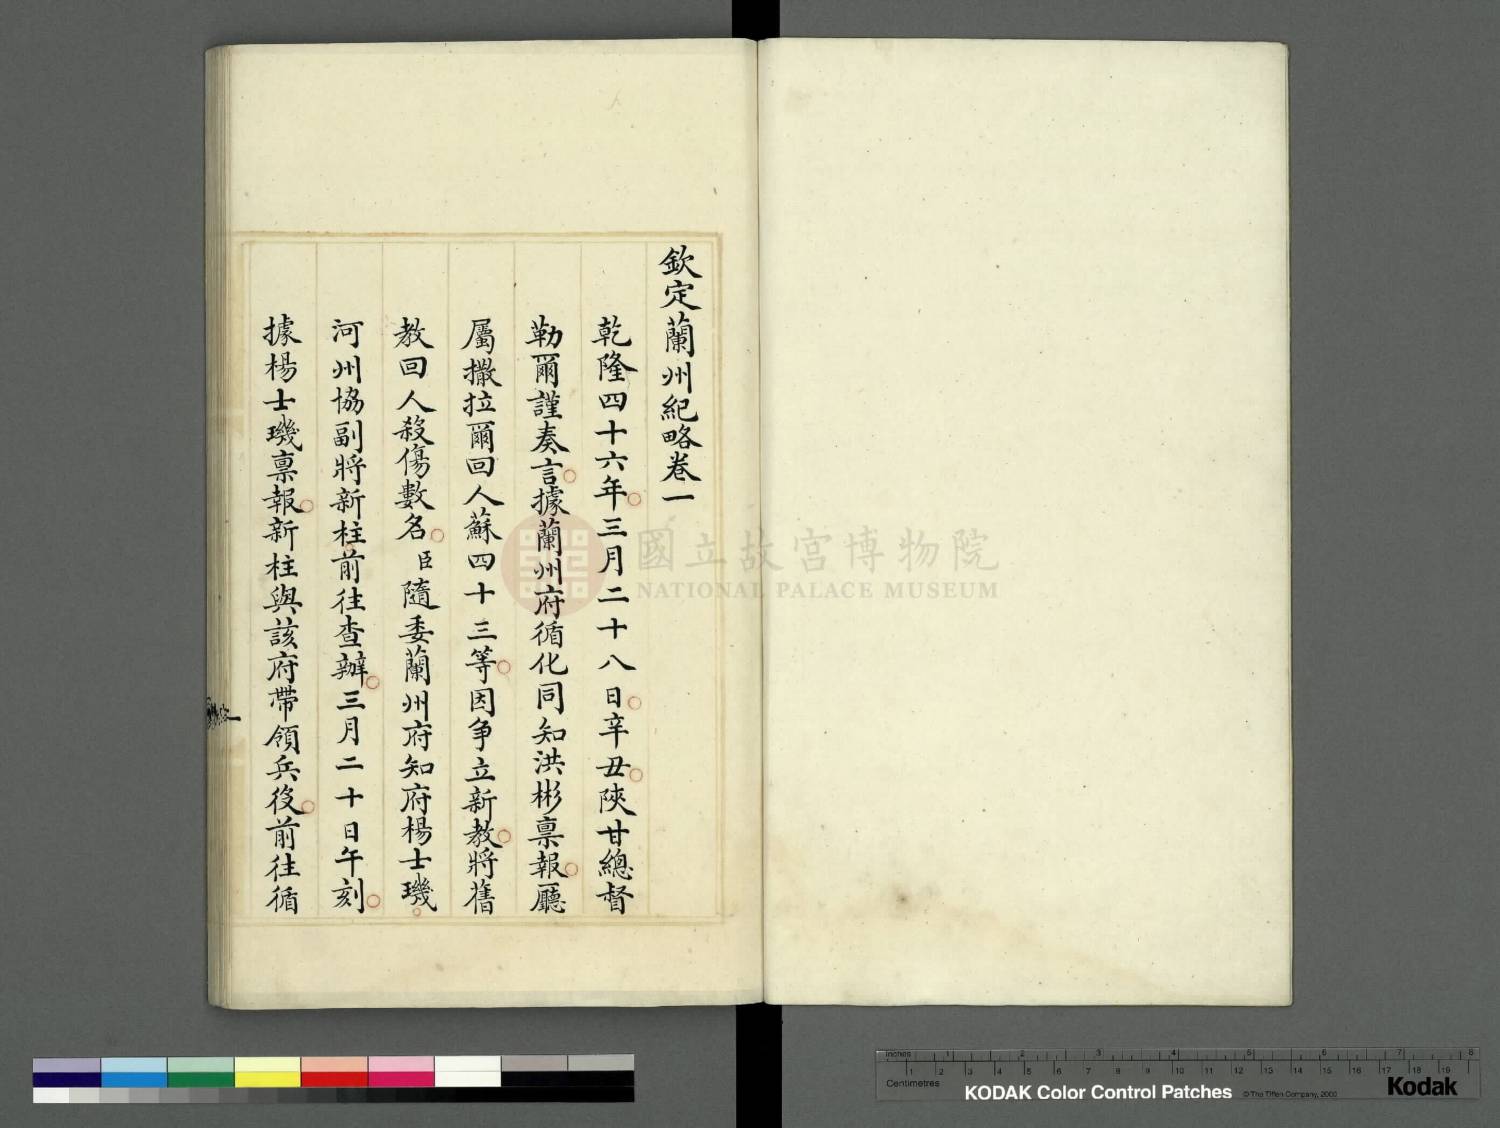 欽定蘭州紀略卷一
乾隆四十六年三月二十八日辛丑陝甘總督
勒爾謹奏言據蘭州府循化同知洪彬稟報廳
屬撒拉爾回人蘇四十三等因争立新教將舊
教回人殺傷數名臣隨委蘭州府知府楊士璣
河州協副將新柱前往查辦三月二十日午刻
據楊士璣稟報新柱與該府帶領兵役前往循
國立故宮博物院
NATIONAL PALACE MUSEUM
Inches 1 2 3 4 5 6 7 8
Centimetres 1 2 3 4 5 6 7 8 9 10 11 12 13 14 15 16 17 18 19
KODAK Color Control Patches © The Tiffen Company, 2000 Kodak